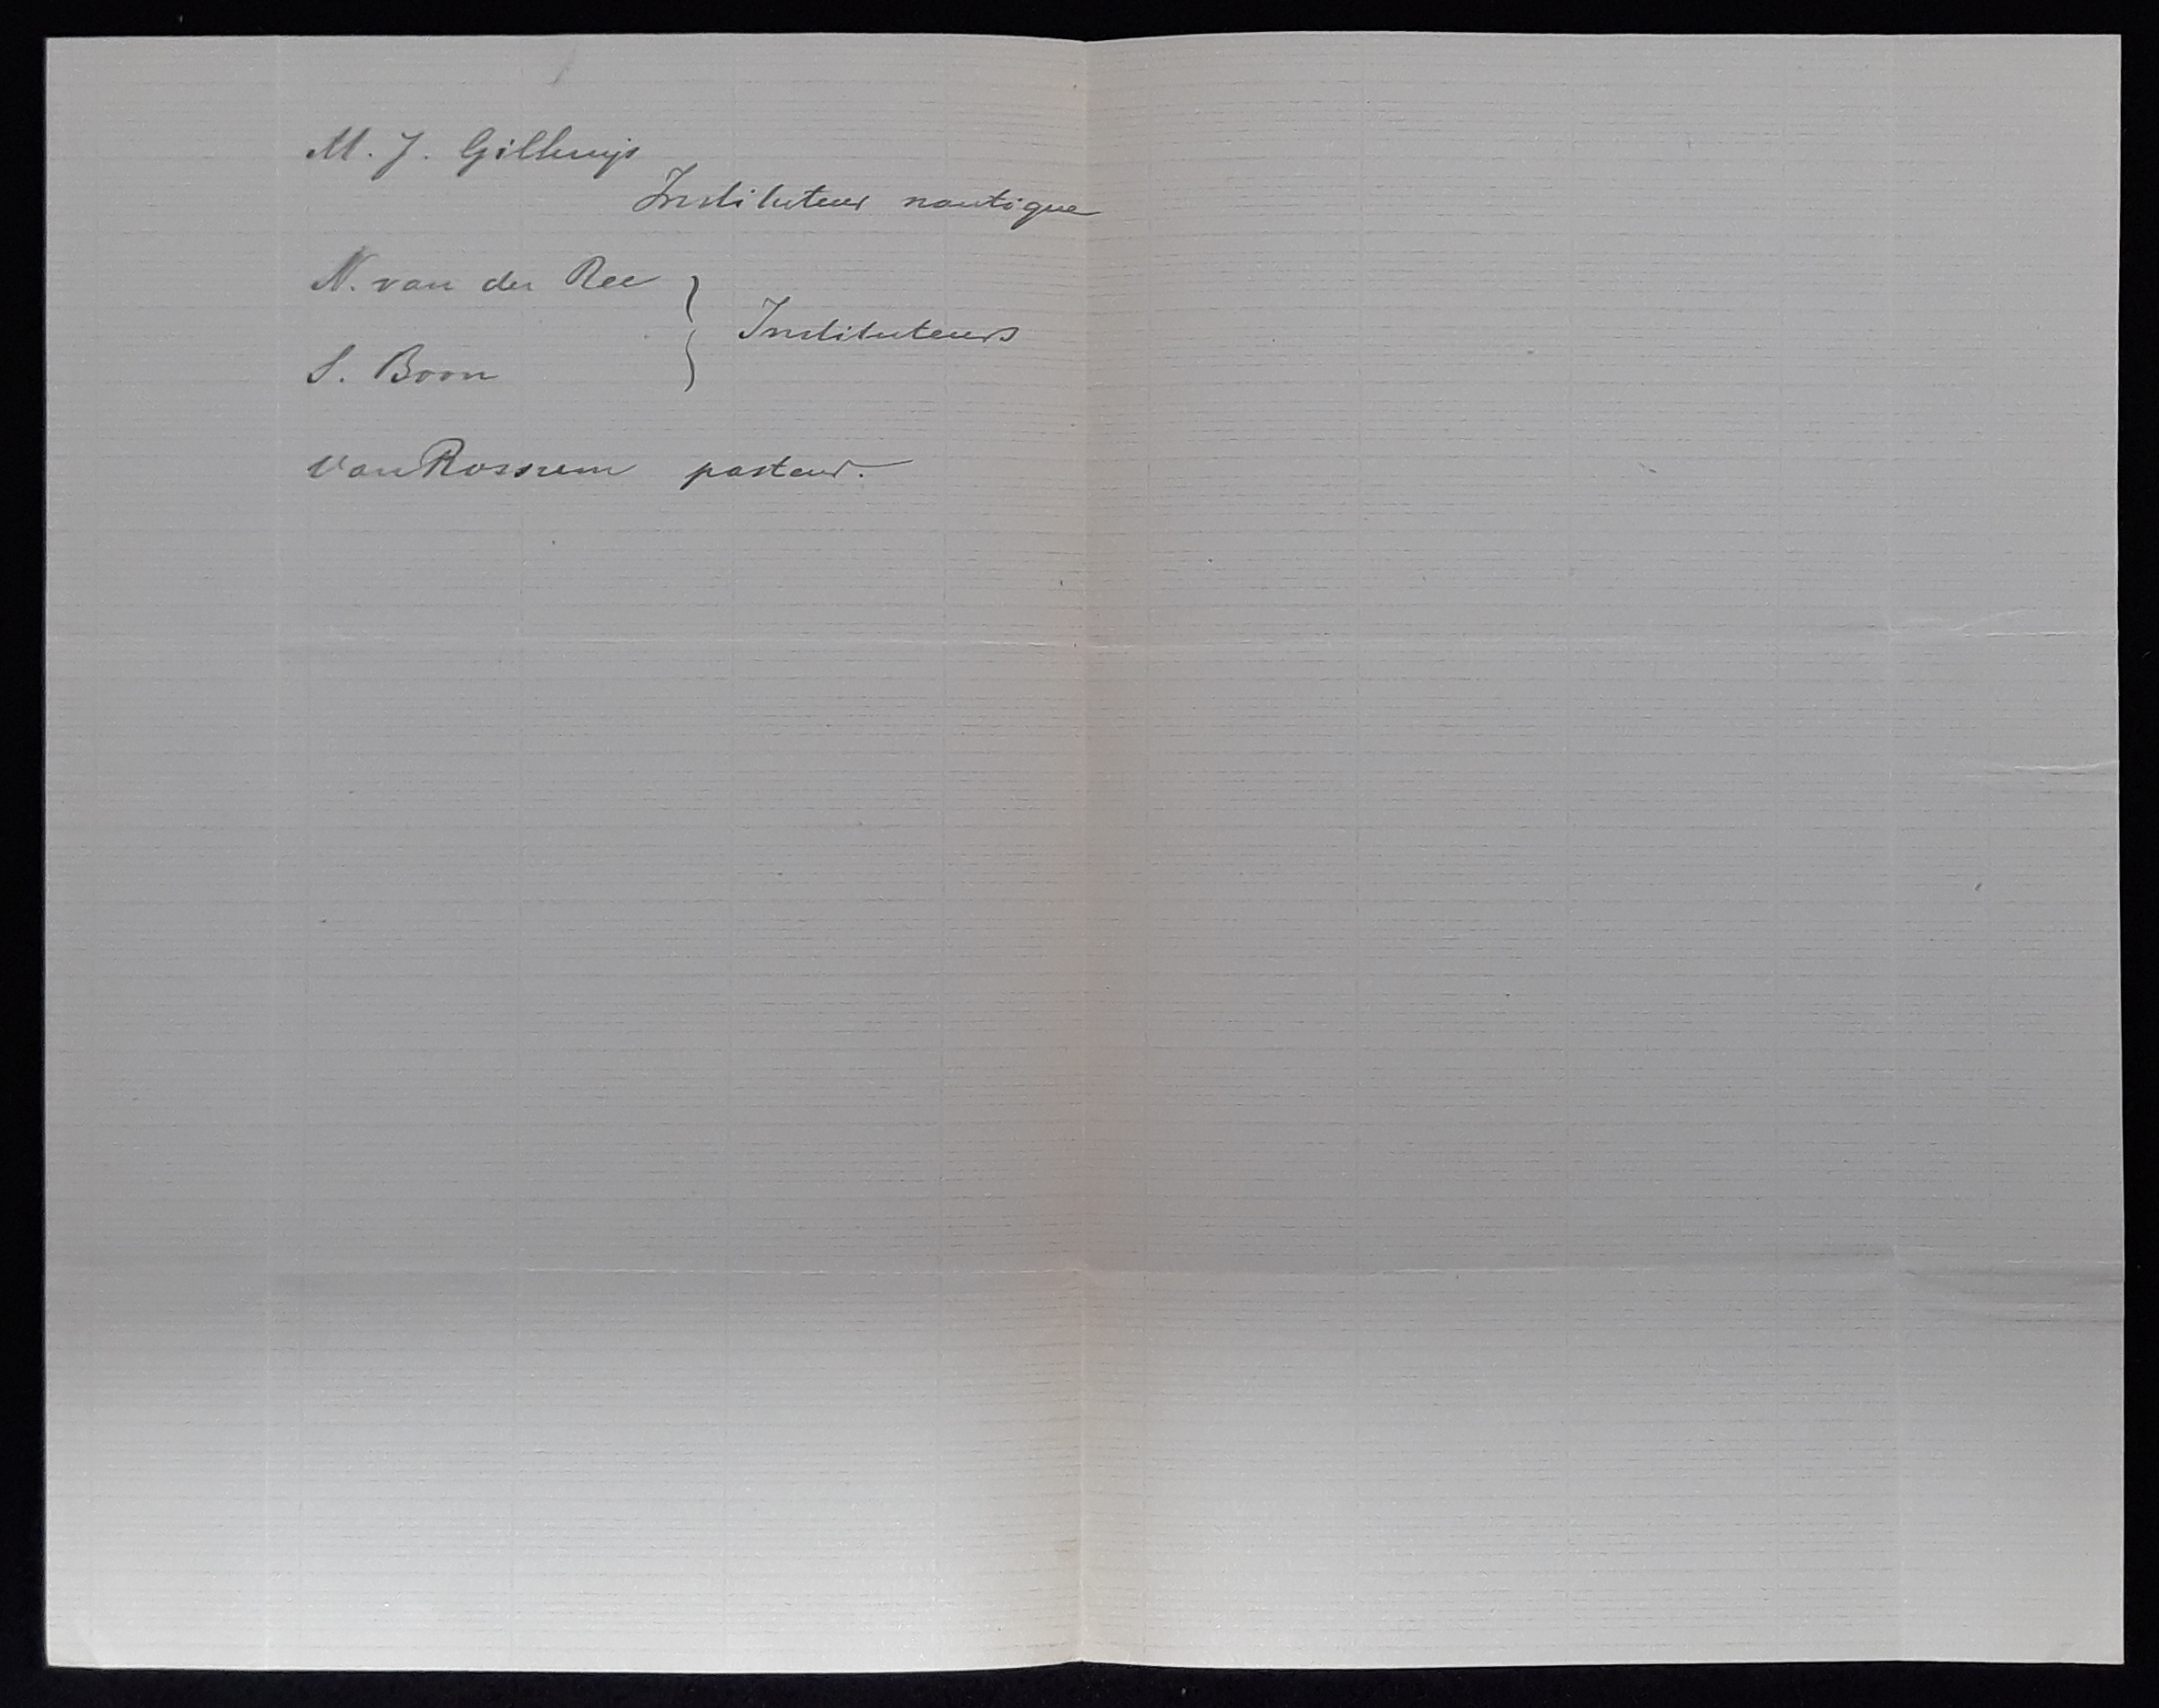 M. J. Gilhuijs
Instituteur nautique
N. van der Ree
Instituteurs
S. Boon
Van Rossum pasteur.